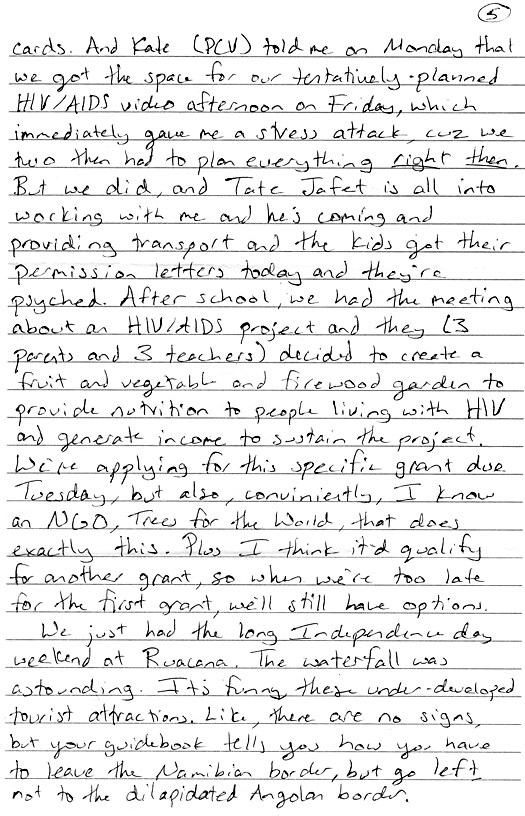 5
cards. And Kate (PCV) told me on Monday that
we got the space for our tentatively-planned
HIV/AIDS video afternoon on Friday, which
immediately gave me a stress attack, cuz we
two then had to plan everything right then.
But we did, and Tate Jafet is all into
working with me and he's coming and
providing transport and the kids got their
permission letters today and they're
psyched. After school, we had the meeting
about an HIV/AIDS project and they (3
parents and 3 teachers) decided to create a
fruit and vegetable and firewood garden to
provide nutrition to people living with HIV
and generate income to sustain the project.
We're applying for this specific grant due
Tuesday, but also, conviniently, I know
an NGO, Trees for the World, that does
exactly this. Plus I think it'd qualify
for another grant, so when we're too late
for the first grant, we'll still have options.
We just had the long Independence day
weekend at Ruacana. The waterfall was
astounding. It's funny these under-developed
tourist attractions. Like, there are no signs,
but your guidebook tells you how you have
to leave the Namibian border, but go left
not to the dilapidated Angolan border.